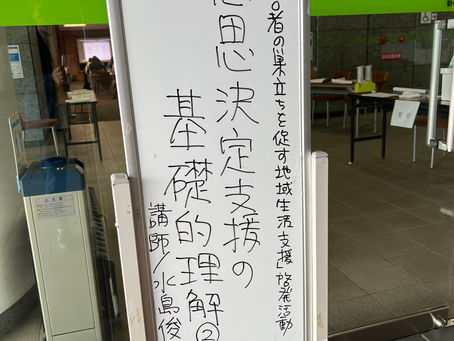 者の巣立ちを促す地域生活支援」啓発活動
思決定支援の
基礎的理解②
講師/水島俊